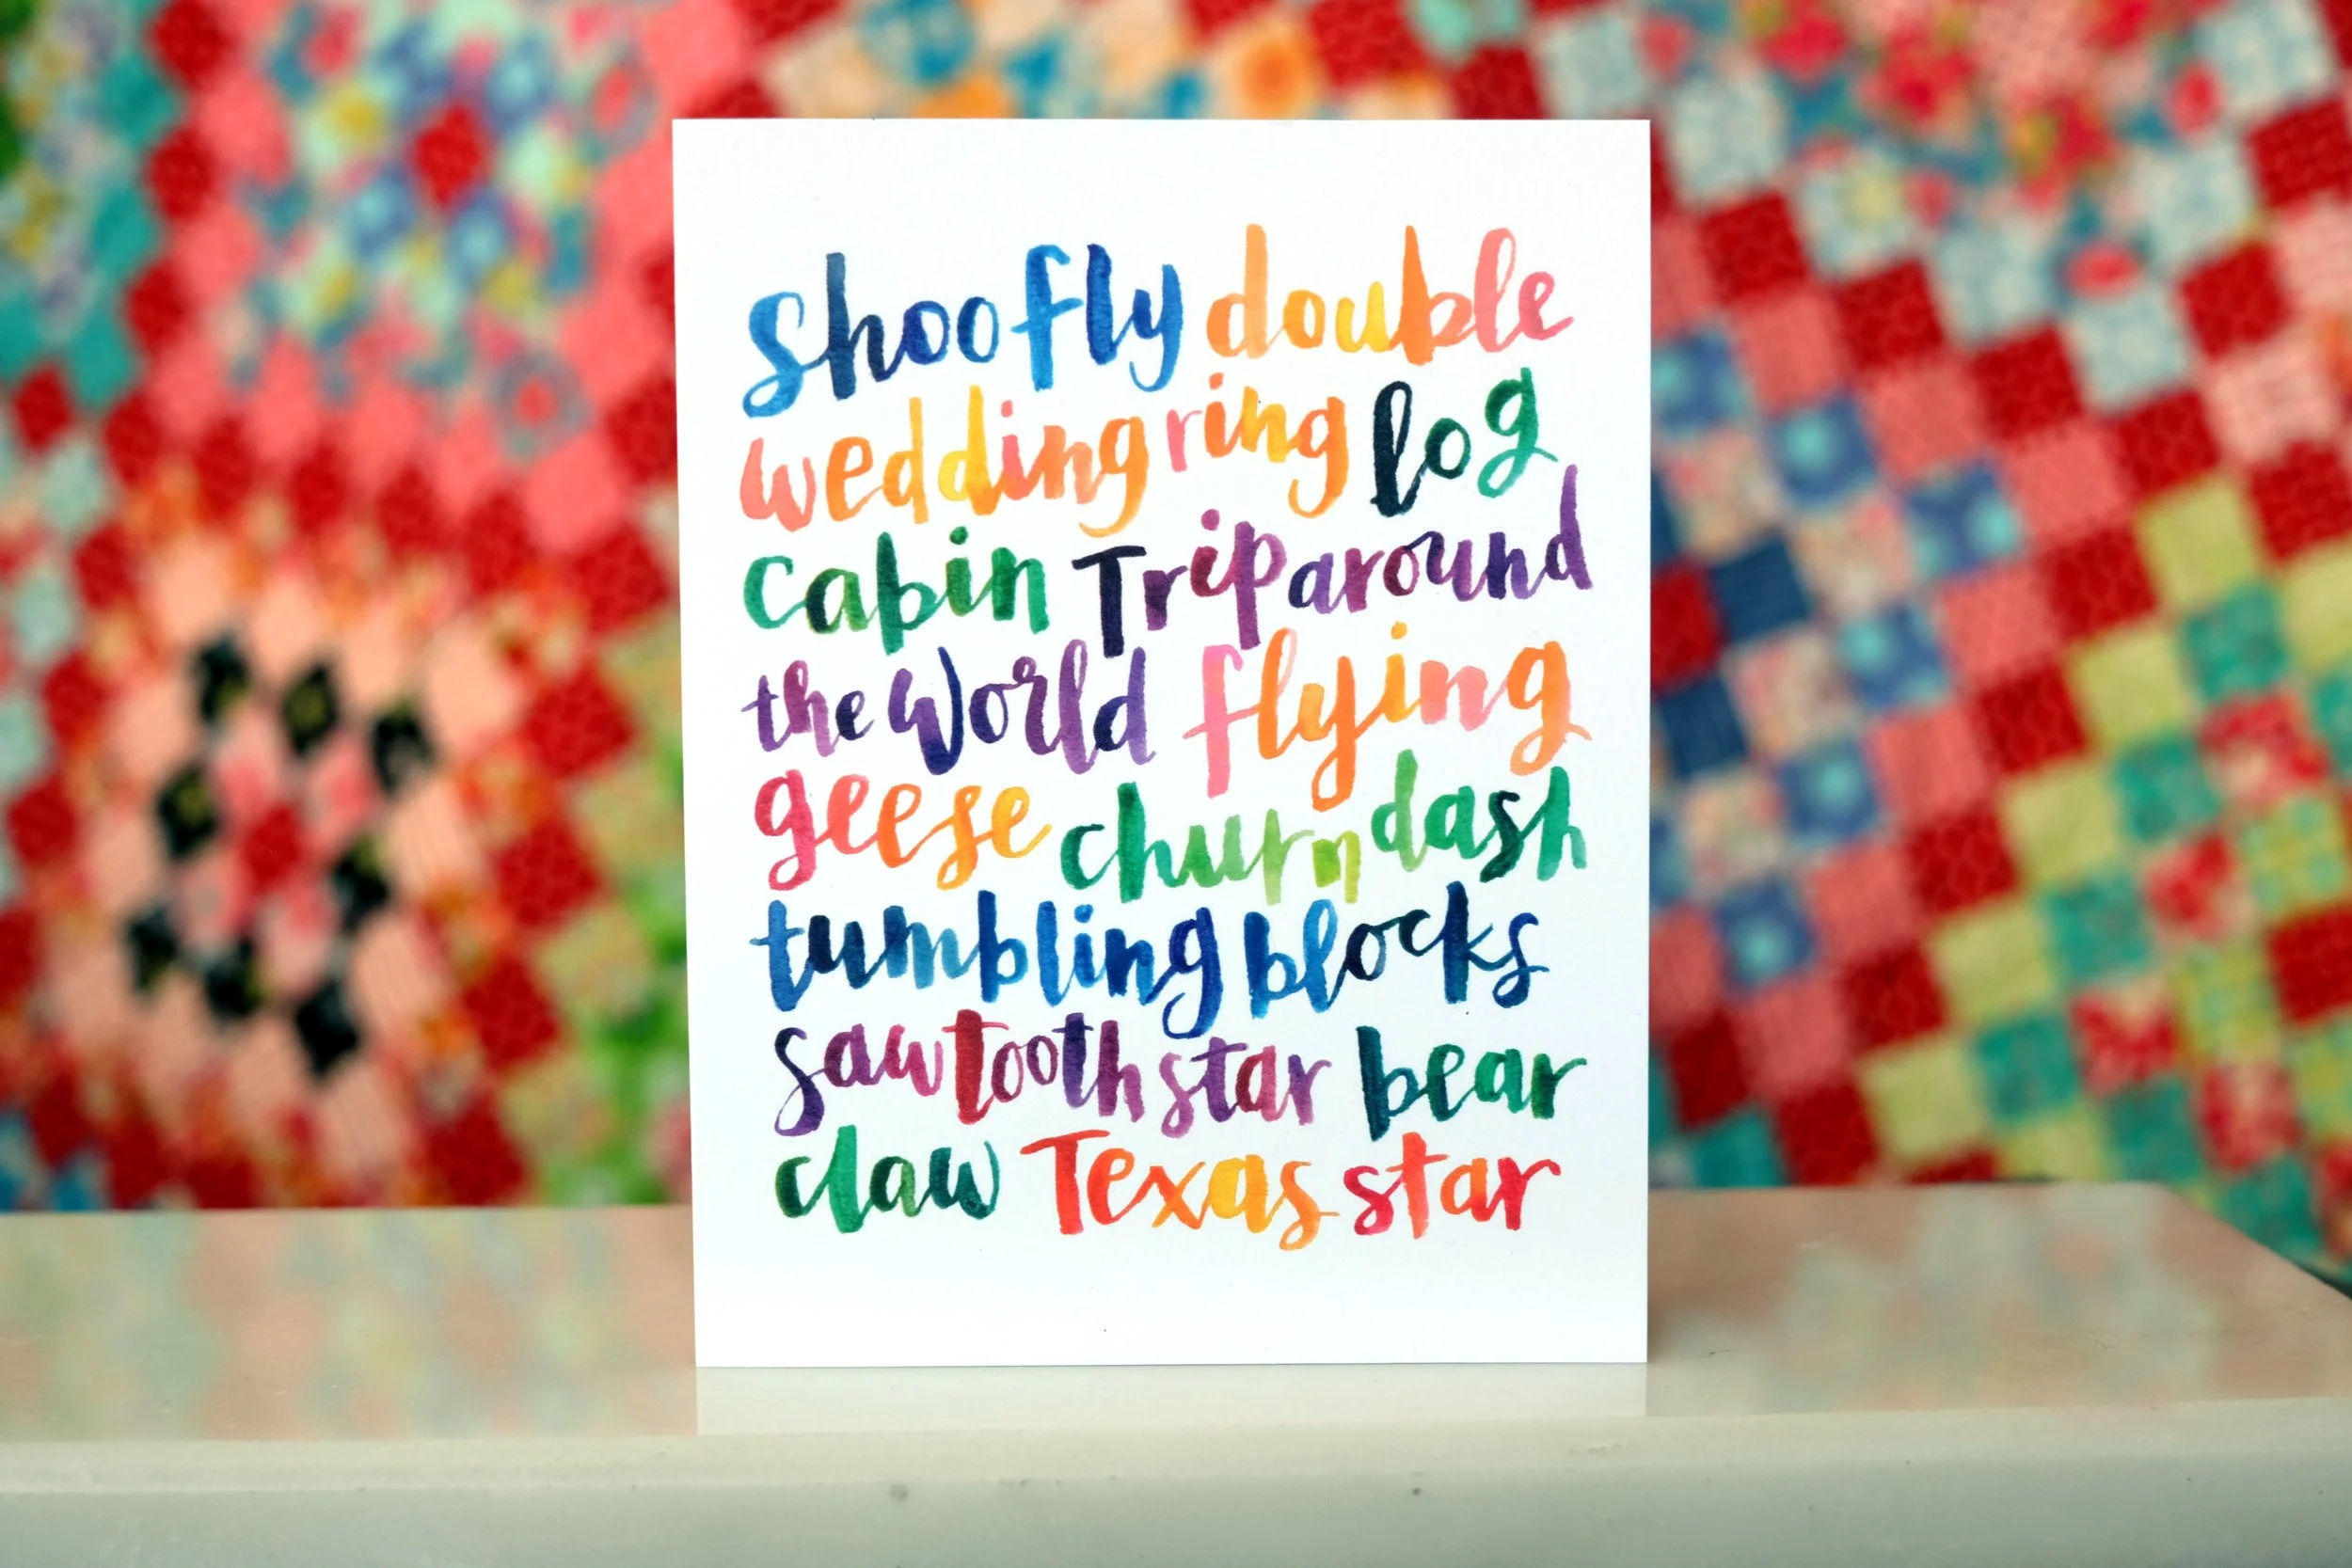 Shoo fly double
wedding ring log
cabin Trip around
the World flying
geese churn dash
tumbling blocks
sawtooth star bear
claw Texas star